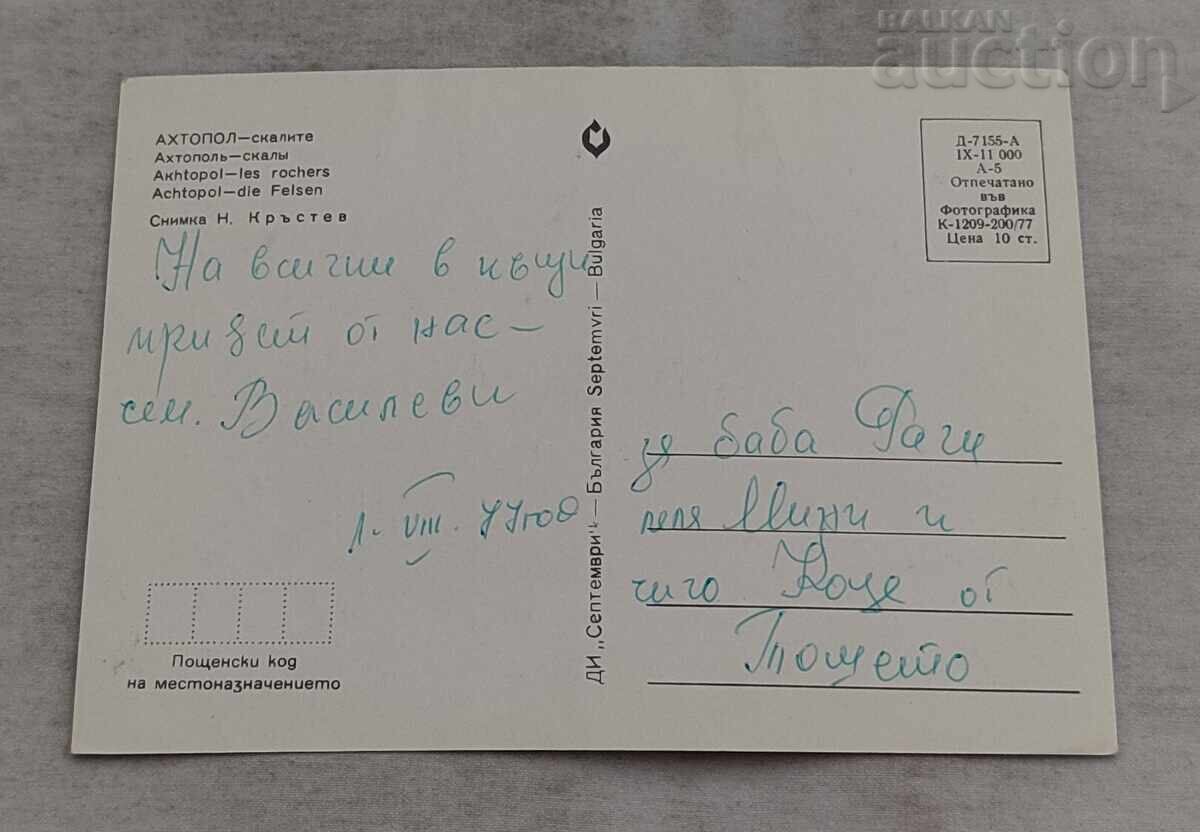 BALKAN
auction
АХТОПОЛ—скалите
Ахтополь—скалы
Akhtopol—les rochers
Achtopol—die Felsen
Снимка Н. Кръстев
На всички в къщи
привет от нас –
сем. Василеви
1. VIII. 77 год
Пощенски код
на местоназначението
ДИ „Септември" — България Septemvri — Bulgaria
Д-7155-А
IX-11 000
А-5
Отпечатано
във
Фотографика
К-1209-200/77
Цена 10 ст.
за баба
леля Мини и
чичо Коце от
Тошето